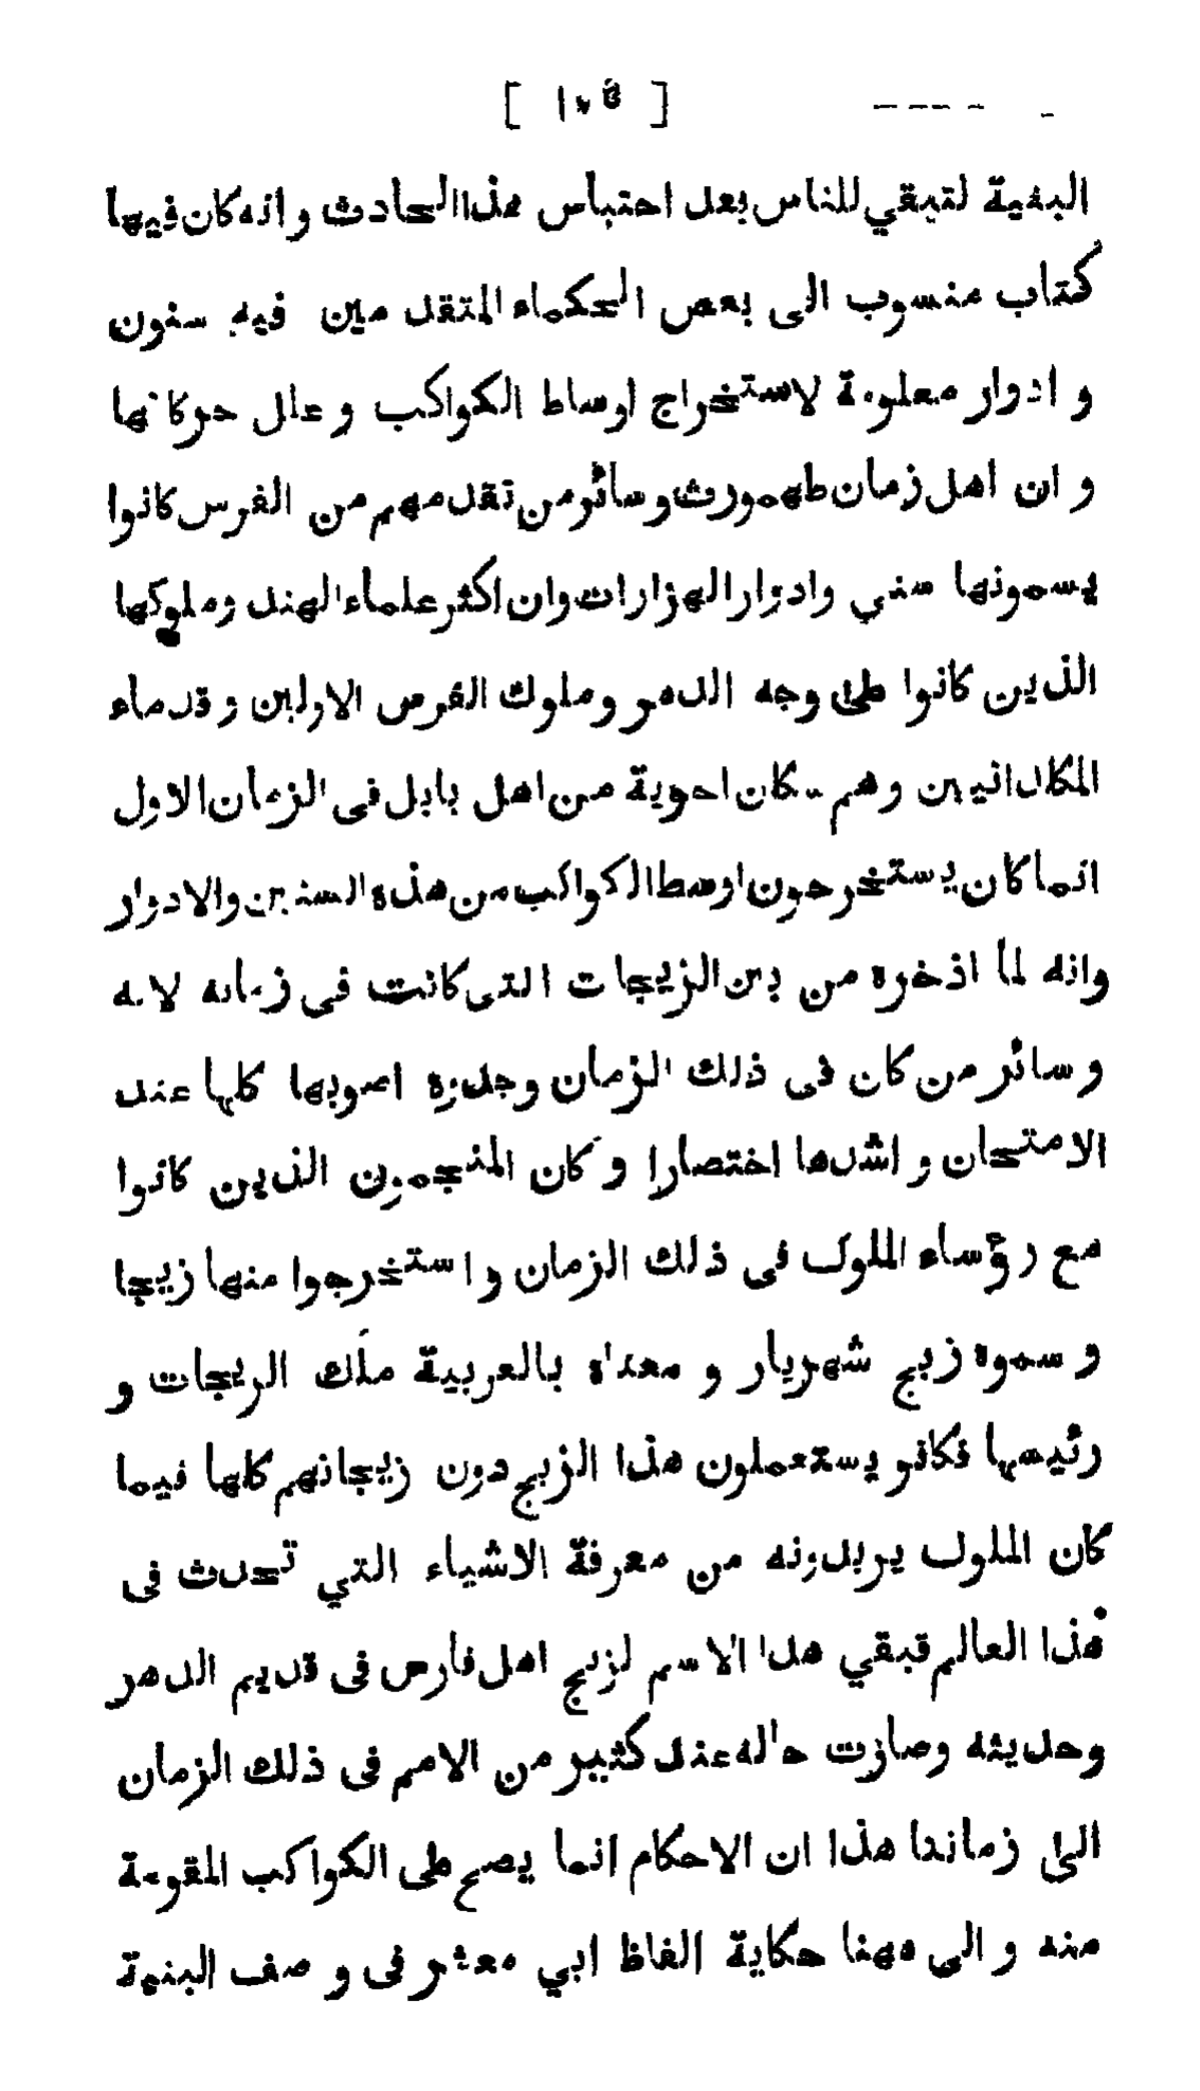 [ ١٠٥ ]
البنية لتبقي للناس بعد احتباس هذا الحادث وانه كان فيها
كتاب منسوب الى بعض الحكماء المتقد مين فيه سنون
و ادوار معلومة لاستخراج اوساط الكواكب و علل حركاتها
و ان اهل زمان طهمورث و سائر من تقدمهم من الفرس كانوا
يسمونها سني وادوار الهزارات وان اكثر علماء الهند وملوكها
الذين كانوا على وجه الدهر و ملوك الفرس الاولين و قدماء
الكلدانيين و هم سكان احوية من اهل بابل فى الزمان الاول
انما كان يستخرجون اوسط الكواكب من هذه السنين والادوار
وانه لما اذخره من بين الزيجات التى كانت فى زمانه لانه
و سائر من كان فى ذلك الزمان وجدوه اصوبها كلها عند
الامتحان و اشدها اختصارا و كان المنجمون الذين كانوا
مع رؤساء الملوك فى ذلك الزمان و استخرجوا منها زيجا
و سموه زيج شهريار و معناه بالعربية ملك الزيجات و
رئيسها فكانو يستعملون هذا الزيج دون زيجاتهم كلها فيما
كان الملوك يريدونه من معرفة الاشياء التي تحدث فى
هذا العالم فبقي هذا الاسم لزيج اهل فارس فى قديم الدهر
وحديثه وصارت حاله عند كثير من الامم فى ذلك الزمان
الى زماننا هذا ان الاحكام انما يصح على الكواكب المقومة
منه و الى ههنا حكاية الفاظ ابي معشر فى و صف البنية